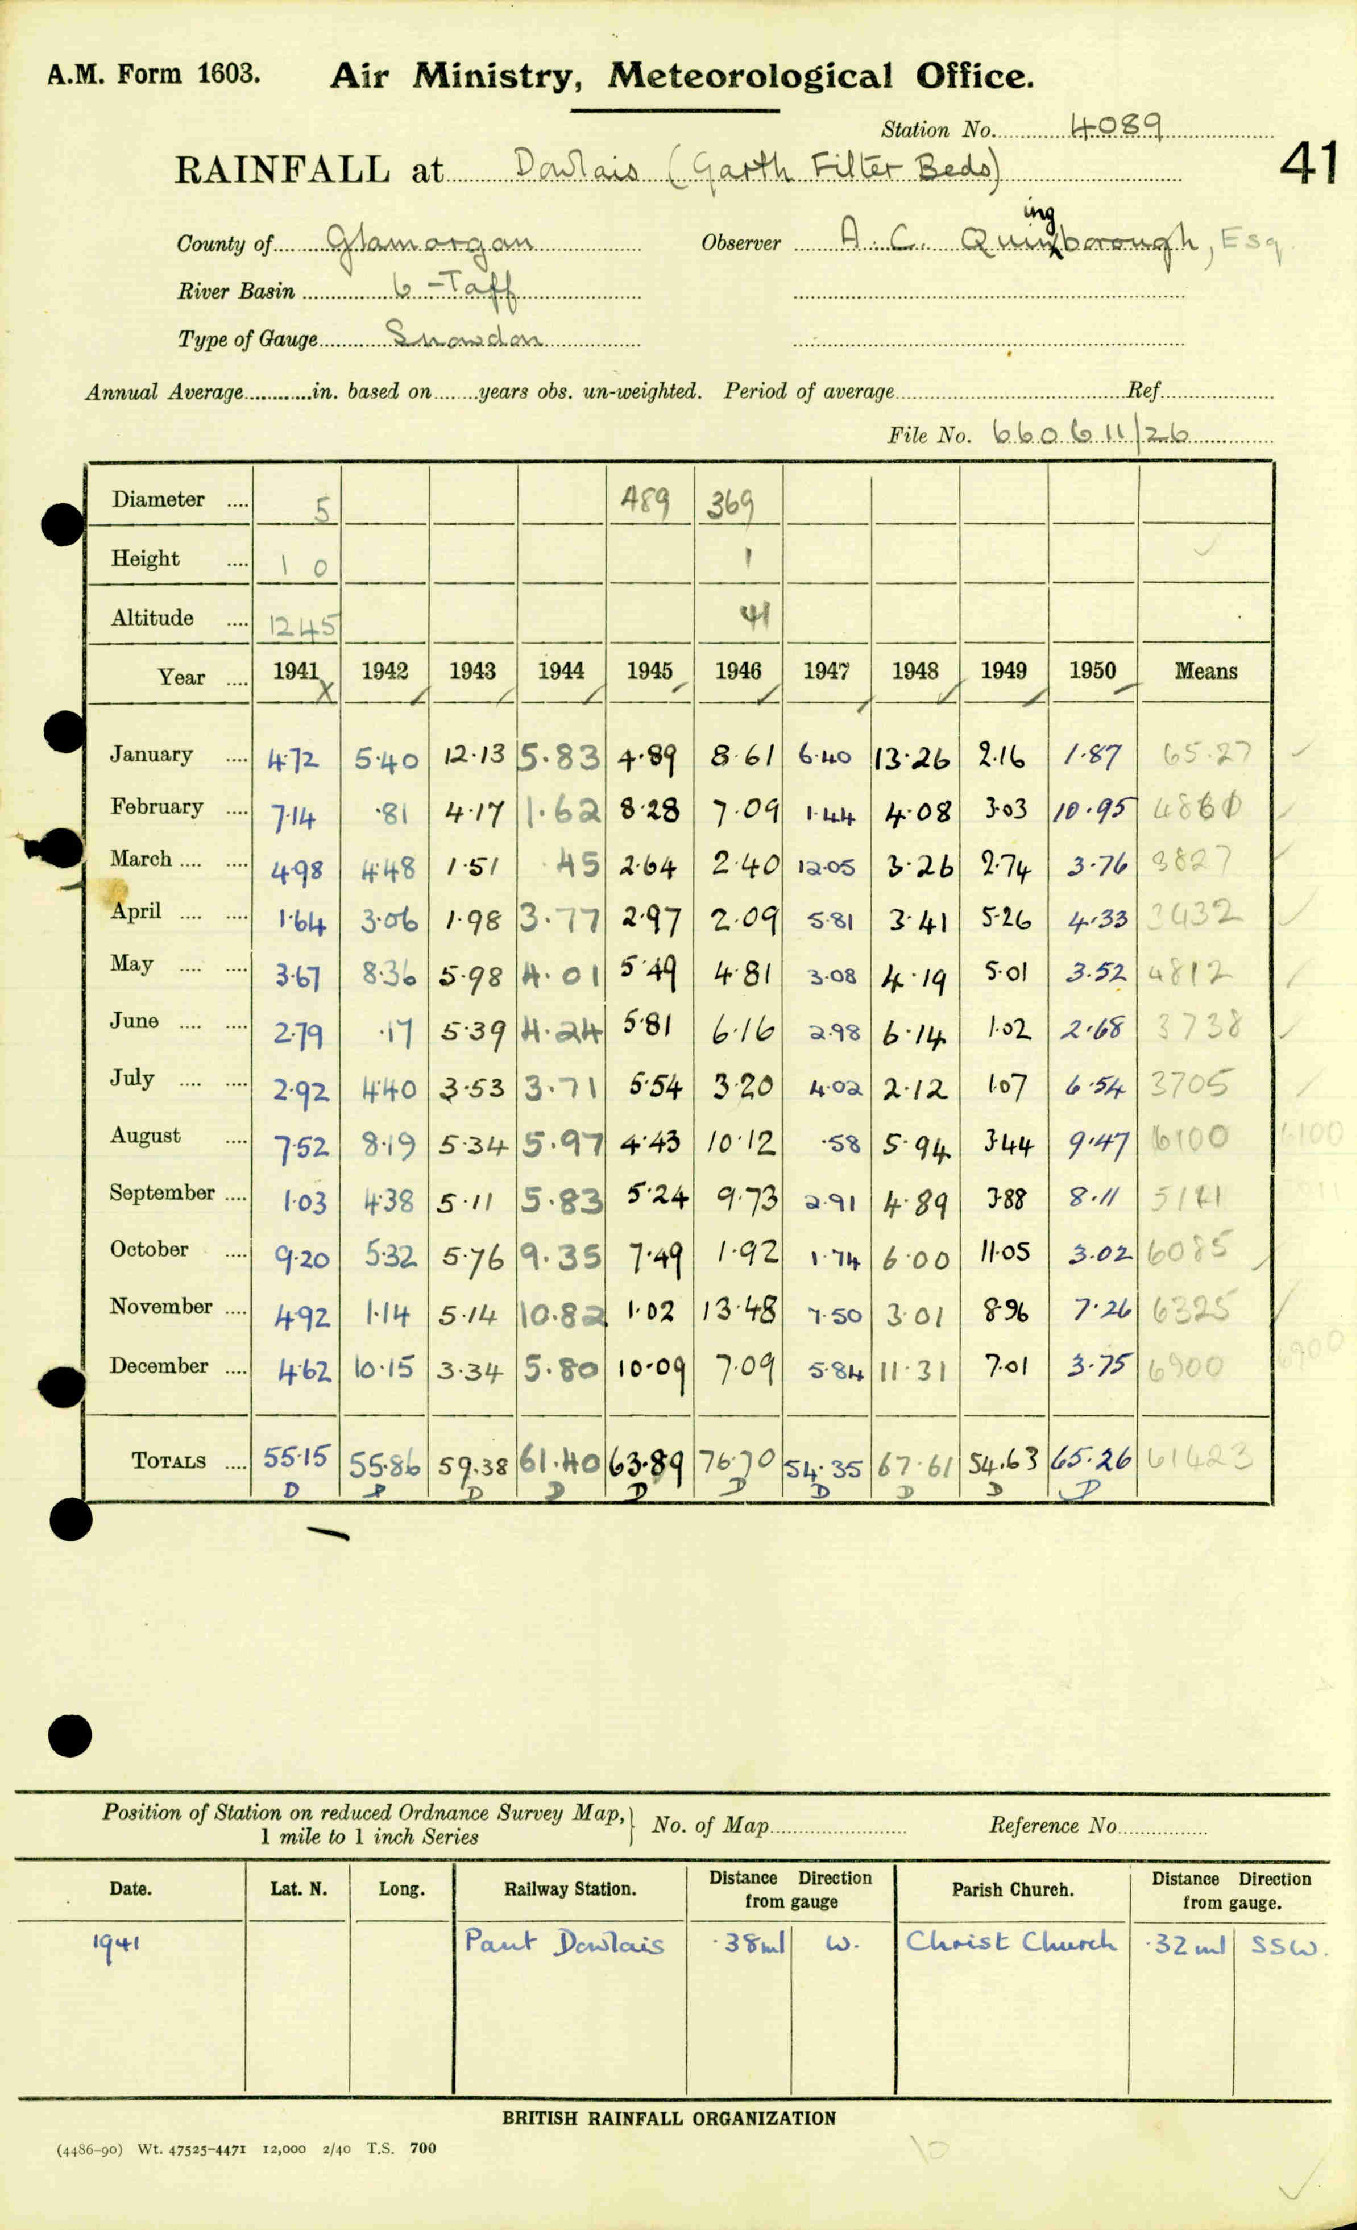 A.M. Form 1603. Air Ministry, Meteorological Office.
Station No. 4089
41
RAINFALL at Dowlais (Garth Filter Beds)
County of Glamorgan Observer A. C. Quiningborough, Esq.
River Basin 6 - Taff
Type of Gauge Snowdon
Annual Average in. based on years obs. un-weighted. Period of average Ref
File No. 660611/26
Diameter .... 5 489 369
Height .... 1 0 1
Altitude .... 1245 41
Year .... 1941 1942 1943 1944 1945 1946 1947 1948 1949 1950 Means
January .... 4.72 5.40 12.13 5.83 4.89 8.61 6.40 13.26 2.16 1.87 65.27
February .... 7.14 .81 4.17 1.62 8.28 7.09 1.44 4.08 3.03 10.95 4861
March .... .... 4.98 4.48 1.51 .45 2.64 2.40 12.05 3.26 2.74 3.76 3827
April .... .... 1.64 3.06 1.98 3.77 2.97 2.09 5.81 3.41 5.26 4.33 3432
May .... .... 3.67 8.36 5.98 4.01 5.49 4.81 3.08 4.19 5.01 3.52 4812
June .... .... 2.79 .17 5.39 4.24 5.81 6.16 2.98 6.14 1.02 2.68 3738
July .... .... 2.92 4.40 3.53 3.71 5.54 3.20 4.02 2.12 1.07 6.54 3705
August .... 7.52 8.19 5.34 5.97 4.43 10.12 .58 5.94 3.44 9.47 6100 6100
September .... 1.03 4.38 5.11 5.83 5.24 9.73 2.91 4.89 3.88 8.11 5111
October .... 9.20 5.32 5.76 9.35 7.49 1.92 1.74 6.00 11.05 3.02 6085
November .... 4.92 1.14 5.14 10.82 1.02 13.48 7.50 3.01 8.96 7.26 6325
December .... 4.62 10.15 3.34 5.80 10.09 7.09 5.84 11.31 7.01 3.75 6900 6900
TOTALS .... 55.15 55.86 59.38 61.40 63.89 76.70 54.35 67.61 54.63 65.26 61423
D D D D D D D D D D
Position of Station on reduced Ordnance Survey Map, 1 mile to 1 inch Series No. of Map Reference No.
Date. Lat. N. Long. Railway Station. Distance Direction from gauge Parish Church. Distance Direction from gauge.
1941 Pant Dowlais .38ml W. Christ Church .32ml SSW.
BRITISH RAINFALL ORGANIZATION
(4486-90) Wt. 47525-4471 12,000 2/40 T.S. 700
10